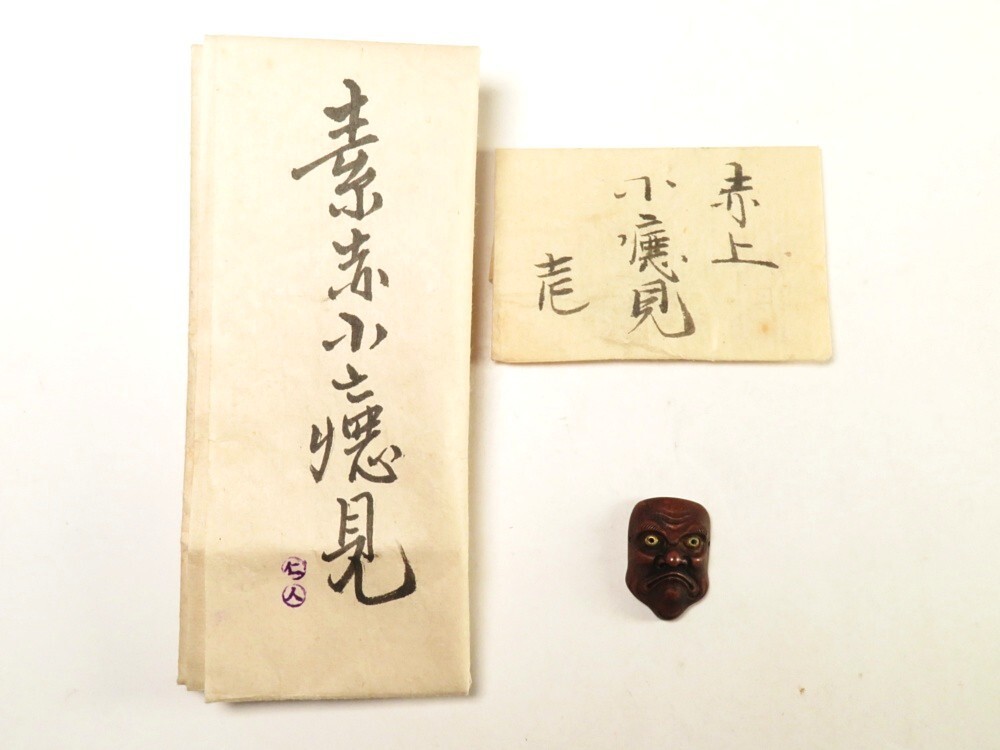 素赤小癋見
赤上
小癋見